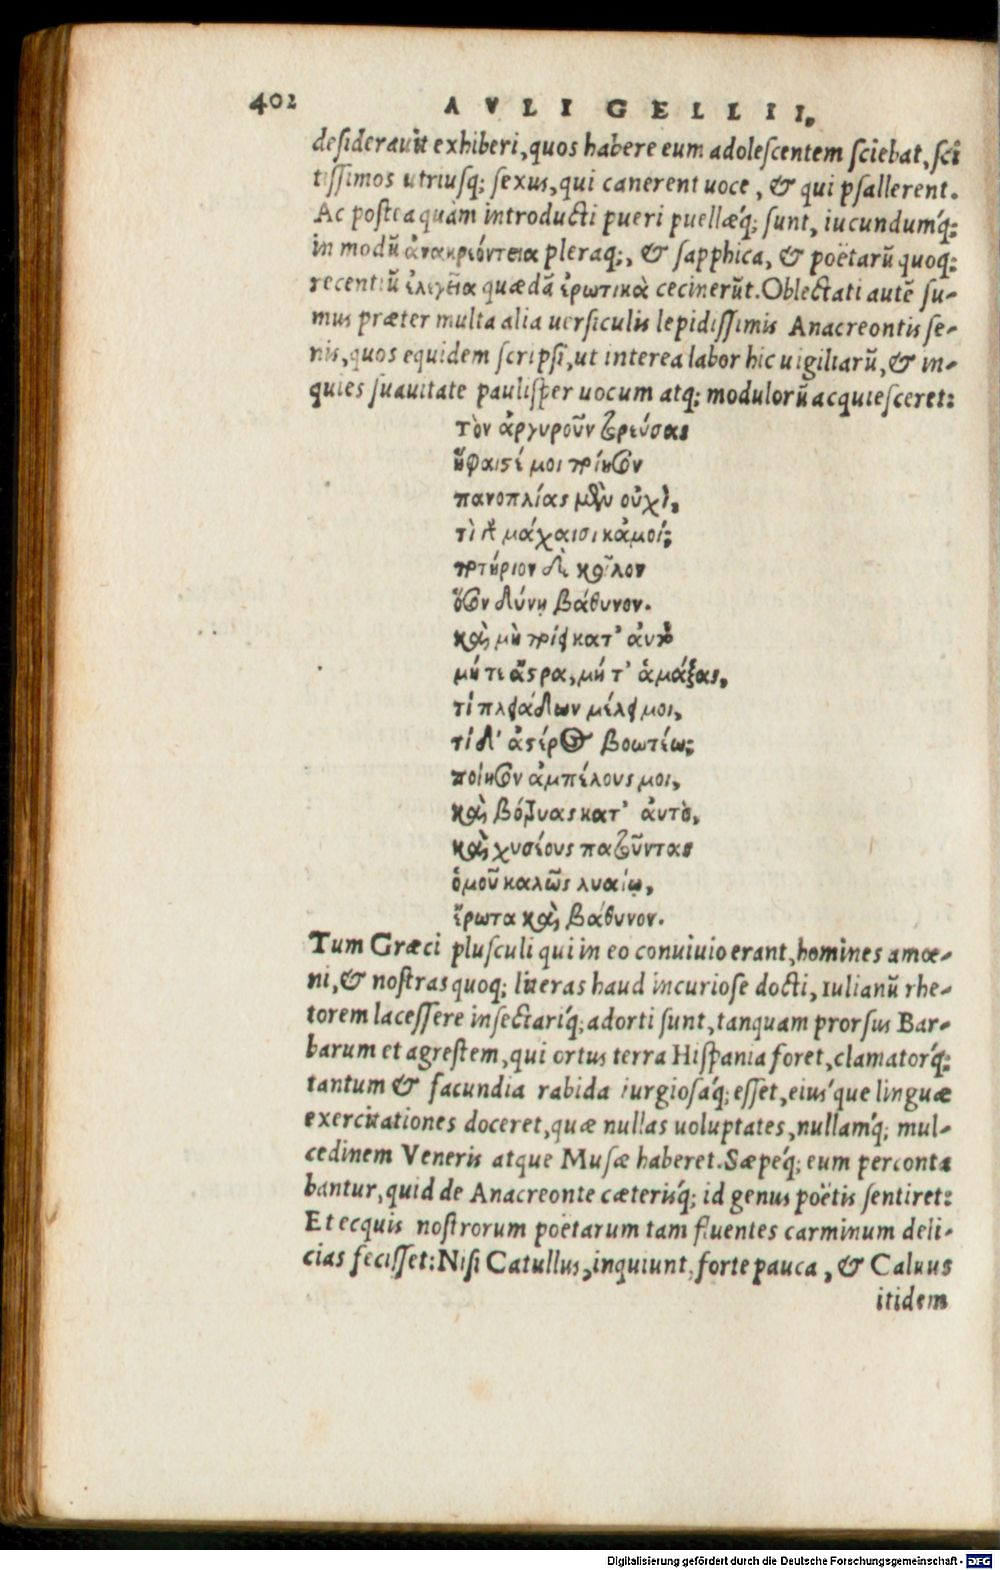 402 AVLI GELLII,
desiderauit exhiberi, quos habere eum adolescentem sciebat, sci
tissimos utriusq; sexus, qui canerent uoce, & qui psallerent.
Ac posteaquàm introducti pueri puellæq́; sunt, iucundumq́;
in modũ ἀνακρεόντεια pleraq;, & sapphica, & poëtarũ quoq;
recentiũ ἐλεγεῖα quædã ἐρωτικὰ cecinerũt. Oblectati autẽ su-
mus præter multa alia uersiculis lepidissimis Anacreontis se-
nis, quos equidem scripsi, ut interea labor hic uigiliarũ, & in-
quies suauitate paulisper uocum atq; modulorũ acquiesceret:
τὸν ἀργυροῦν τορεύσας
ἥφαιστέ μοι ποίησον
πανοπλίας μὲν οὐχὶ,
τὶ γὰρ μάχαισι κἀμοί;
ποτήριον δὲ κοῖλον
ὅσον δύνῃ βάθυνον.
καὶ μὴ ποίει κατ' ἀυτὸ
μήτε ἄστρα, μήτ' ἁμάξας,
τί πλειάδων μέλει μοι,
τί δ' ἀστέρος βοωτέω;
ποίησον ἀμπέλους μοι,
καὶ βότρυας κατ' ἀυτὸ,
καὶ χυσέους πατοῦντας
ὁμοῦ καλῶς λυαίῳ,
ἔρωτα καὶ βάθυνον.
Tum Græci plusculi qui in eo conuiuio erant, homines amœ-
ni, & nostras quoq; literas haud incuriose docti, iulianũ rhe-
torem lacessere insectariq́; adorti sunt, tanquam prorsus Bar-
barum et agrestem, qui ortus terra Hispania foret, clamatorq́;
tantum & facundia rabida iurgiosaq́; esset, eius'que linguæ
exercitationes doceret, quæ nullas uoluptates, nullamq́; mul-
cedinem Veneris atque Musæ haberet. Sæpeq́; eum perconta
bantur, quid de Anacreonte cæterisq́; id genus poëtis sentiret:
Et ecquis nostrorum poetarum tam fluentes carminum deli-
cias fecisset: Nisi Catullus, inquiunt, forte pauca, & Caluus
itidem
Digitalisierung gefördert durch die Deutsche Forschungsgemeinschaft - DFG